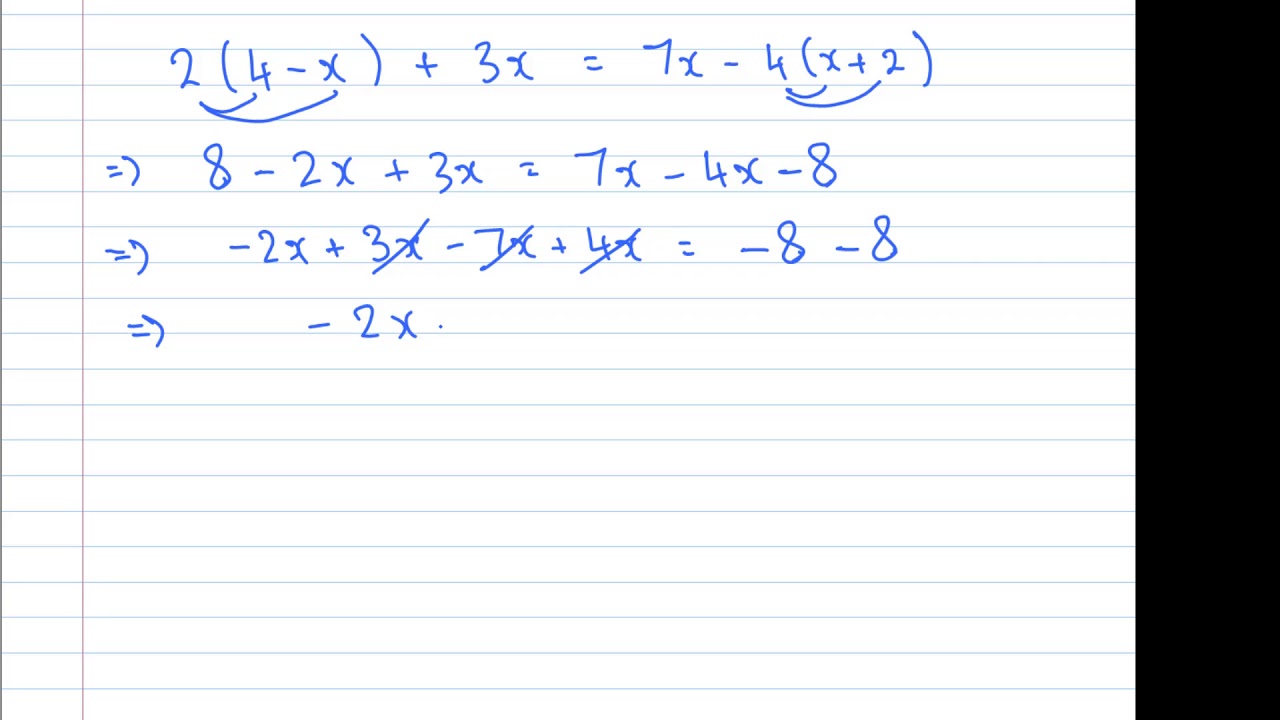 2(4-x) + 3x = 7x - 4(x+2)
=> 8 - 2x + 3x = 7x - 4x - 8
=> -2x + 3x - 7x + 4x = -8 - 8
=> - 2x